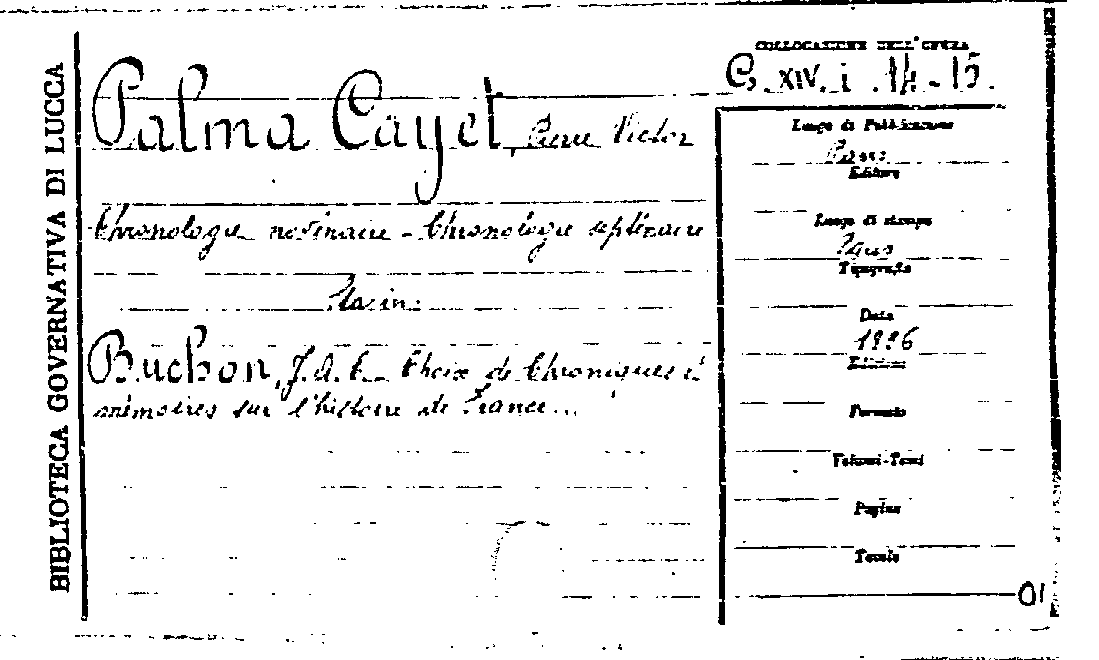 BIBLIOTECA GOVERNATIVA DI LUCCA
COLLOCAZIONE DELL'OPERA
G. XIV. i. 14-15.
Palma Cayet, Pierre Victor
Chronologie novenaire - Chronologie septénaire
Buchon, J. A. C. Choix de Chroniques et
mémoires sur l'histoire de France...
Luogo di Pubblicazione
Editore
Luogo di stampa
Paris
Tipografo
Data
Edizione
Formato
Volumi-Tomi
Pagine
Tavole
01